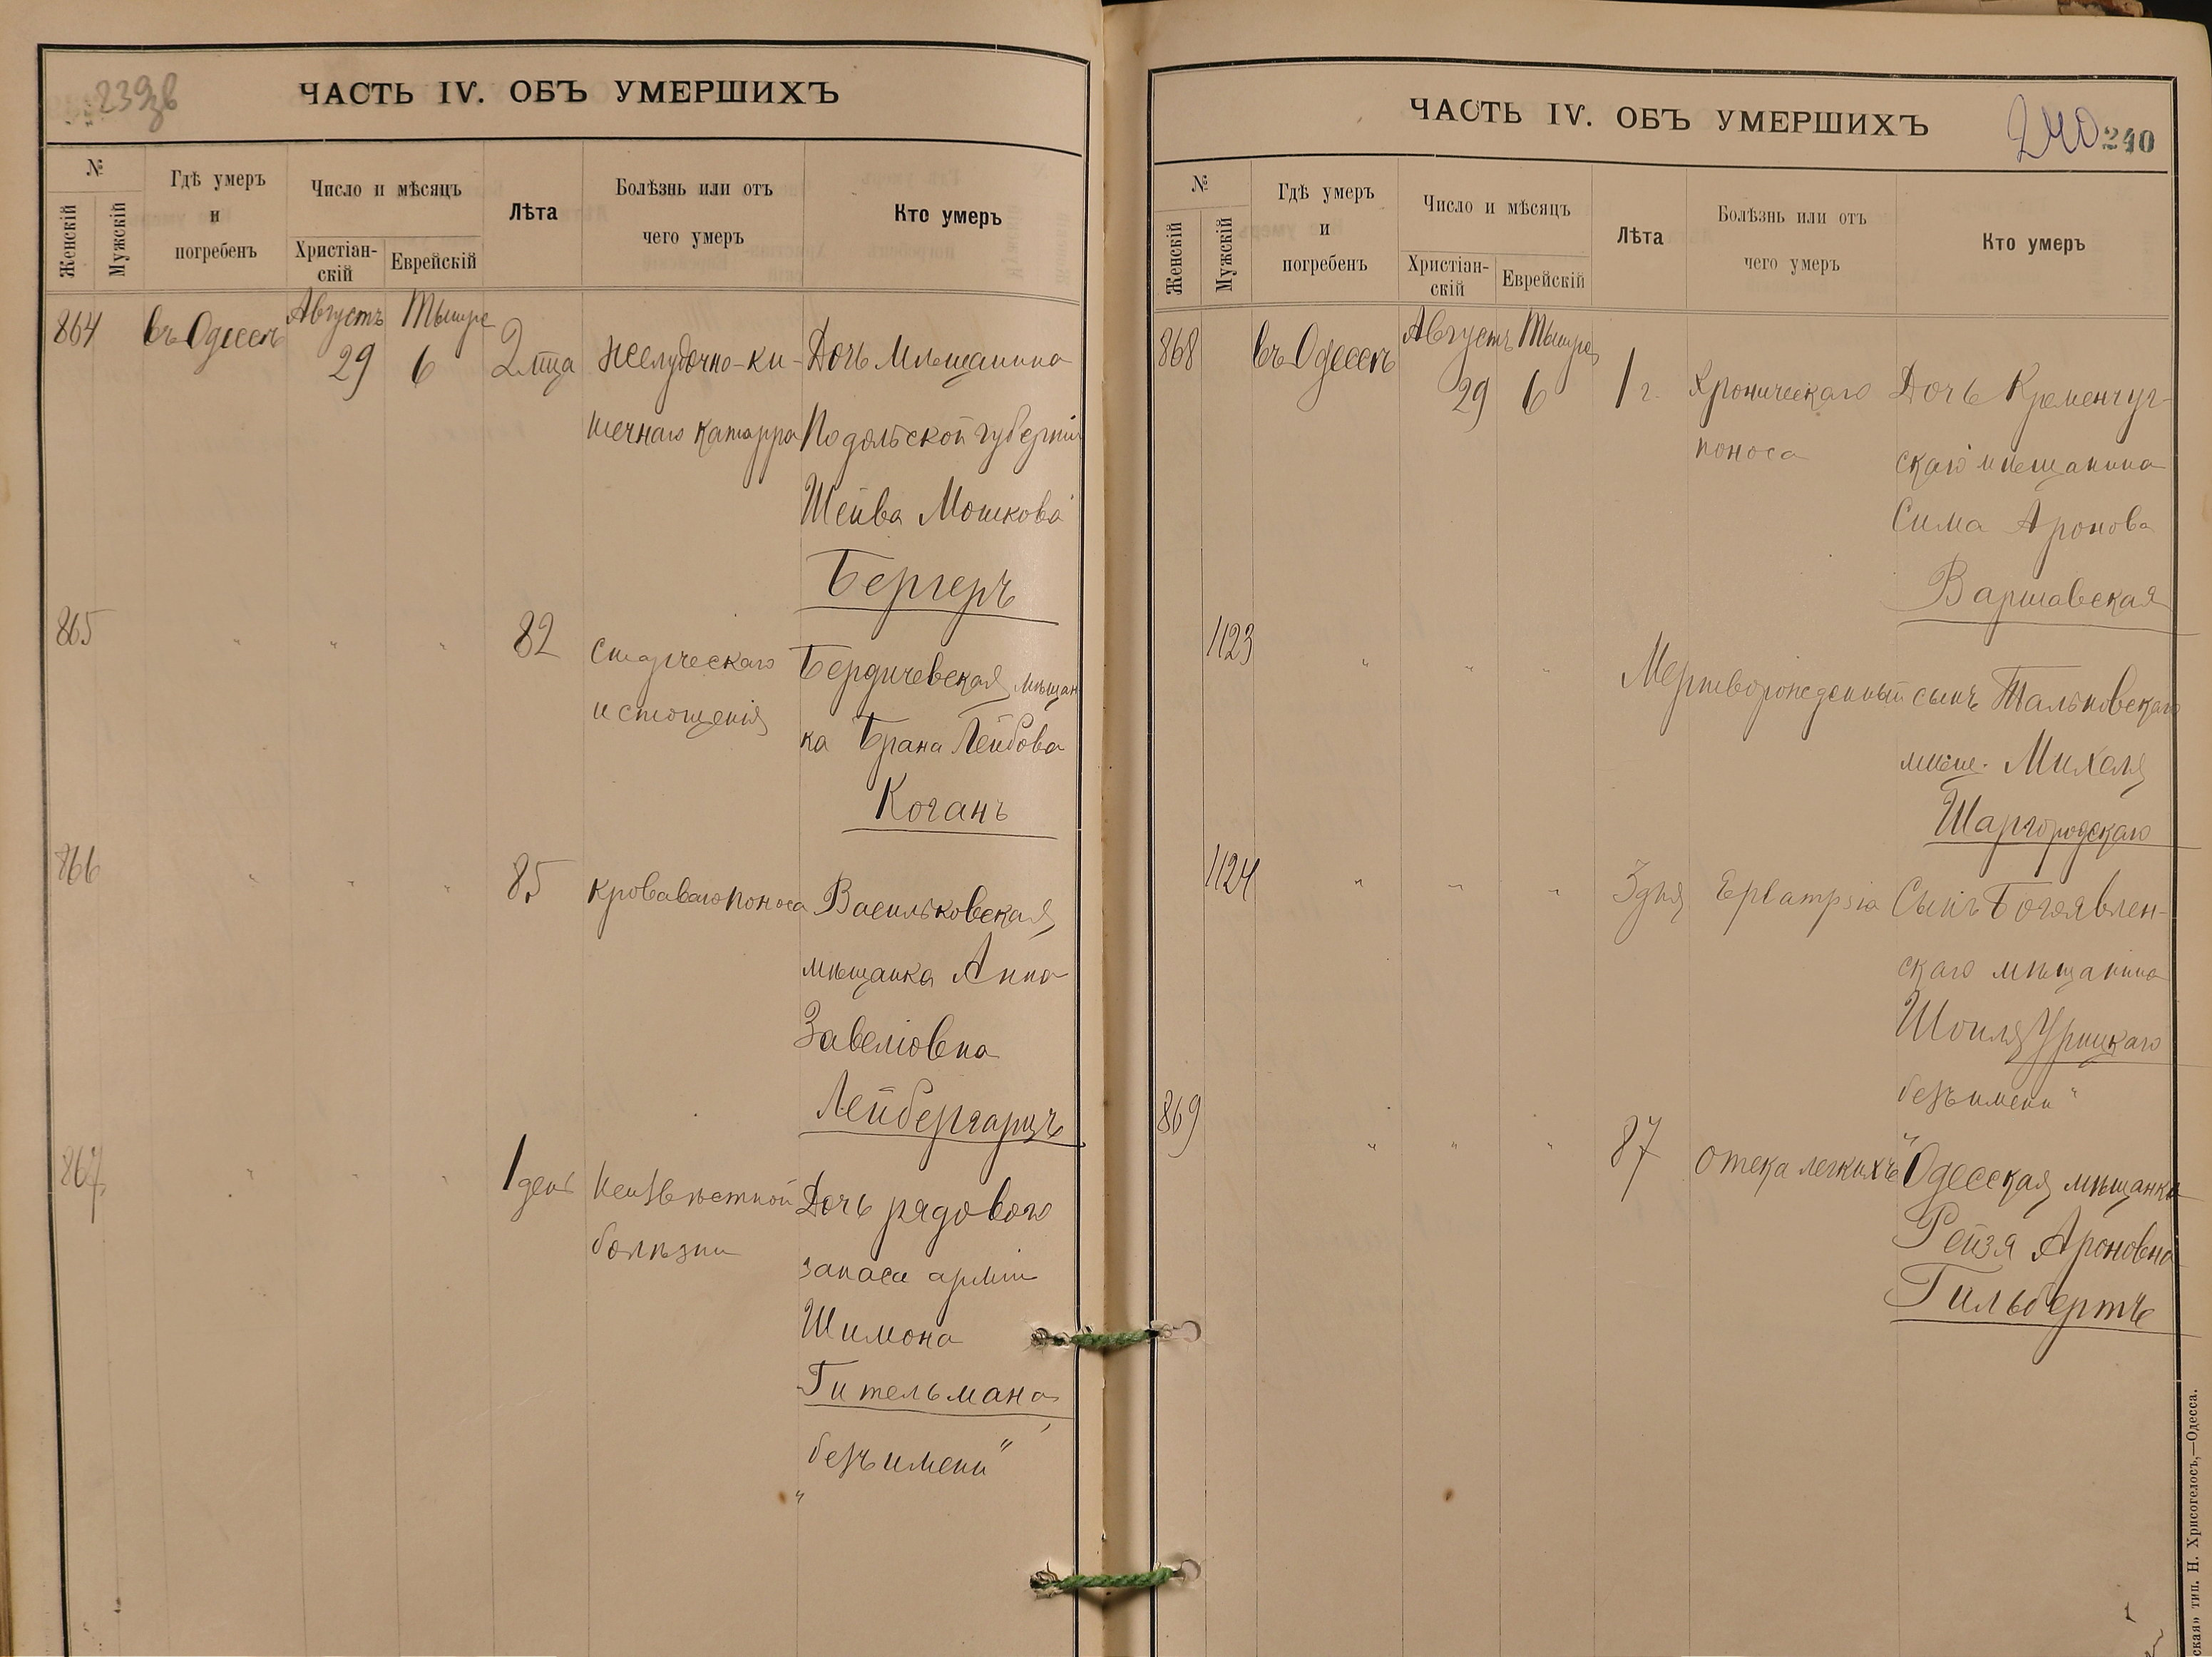 239 зв
ЧАСТЬ IV. ОБЪ УМЕРШИХЪ
№
Женскій
Мужскій
Гдѣ умеръ
и
погребенъ
Число и мѣсяцъ
Христіан-
скій
Еврейскій
Лѣта
Болѣзнь или отъ
чего умеръ
Кто умеръ
864 въ Одессѣ Августъ 29 Тышре 6 2 мца Желудочно-ки- Дочь Мѣщанина
шечнаго катарра Подольской губерніи
Шейва Мошкова
Бергеръ
865 " " " 82 старческаго Бердичевская мѣщан
истощенія ка Брана Лейбова
Коганъ
866 " " " 85 кроваваго поноса Васильковская
мѣщанка Анна
Завеліовна
Лейбергарцъ
867 " " " 1 день Неизвѣстной Дочь рядового
болѣзни запаса арміи
Шимона
Гительмана
"безъ имени"
ЧАСТЬ IV. ОБЪ УМЕРШИХЪ
240 240
№
Женскій
Мужскій
Гдѣ умеръ
и
погребенъ
Число и мѣсяцъ
Христіан-
скій
Еврейскій
Лѣта
Болѣзнь или отъ
чего умеръ
Кто умеръ
868 въ Одессѣ Августъ 29 Тышре 6 1 г. Хроническаго Дочь Кременчуг-
поноса скаго мѣщанина
Сима Аронова
Варшавская
1123 " " " Мертворожденный сынъ Тальновскаго
мѣщ. Михеля
Шаргородскаго
1124 " " " 3 дня Eplampsia Сынъ Богоявлен-
скаго мѣщанина
Шоиля Урицкаго
"безъ имени"
869 " " " 87 отека легкихъ Одесская мѣщанка
Рейзя Ароновна
Гильбертъ
ская» тип. Н. Хрисогелосъ,—Одесса.